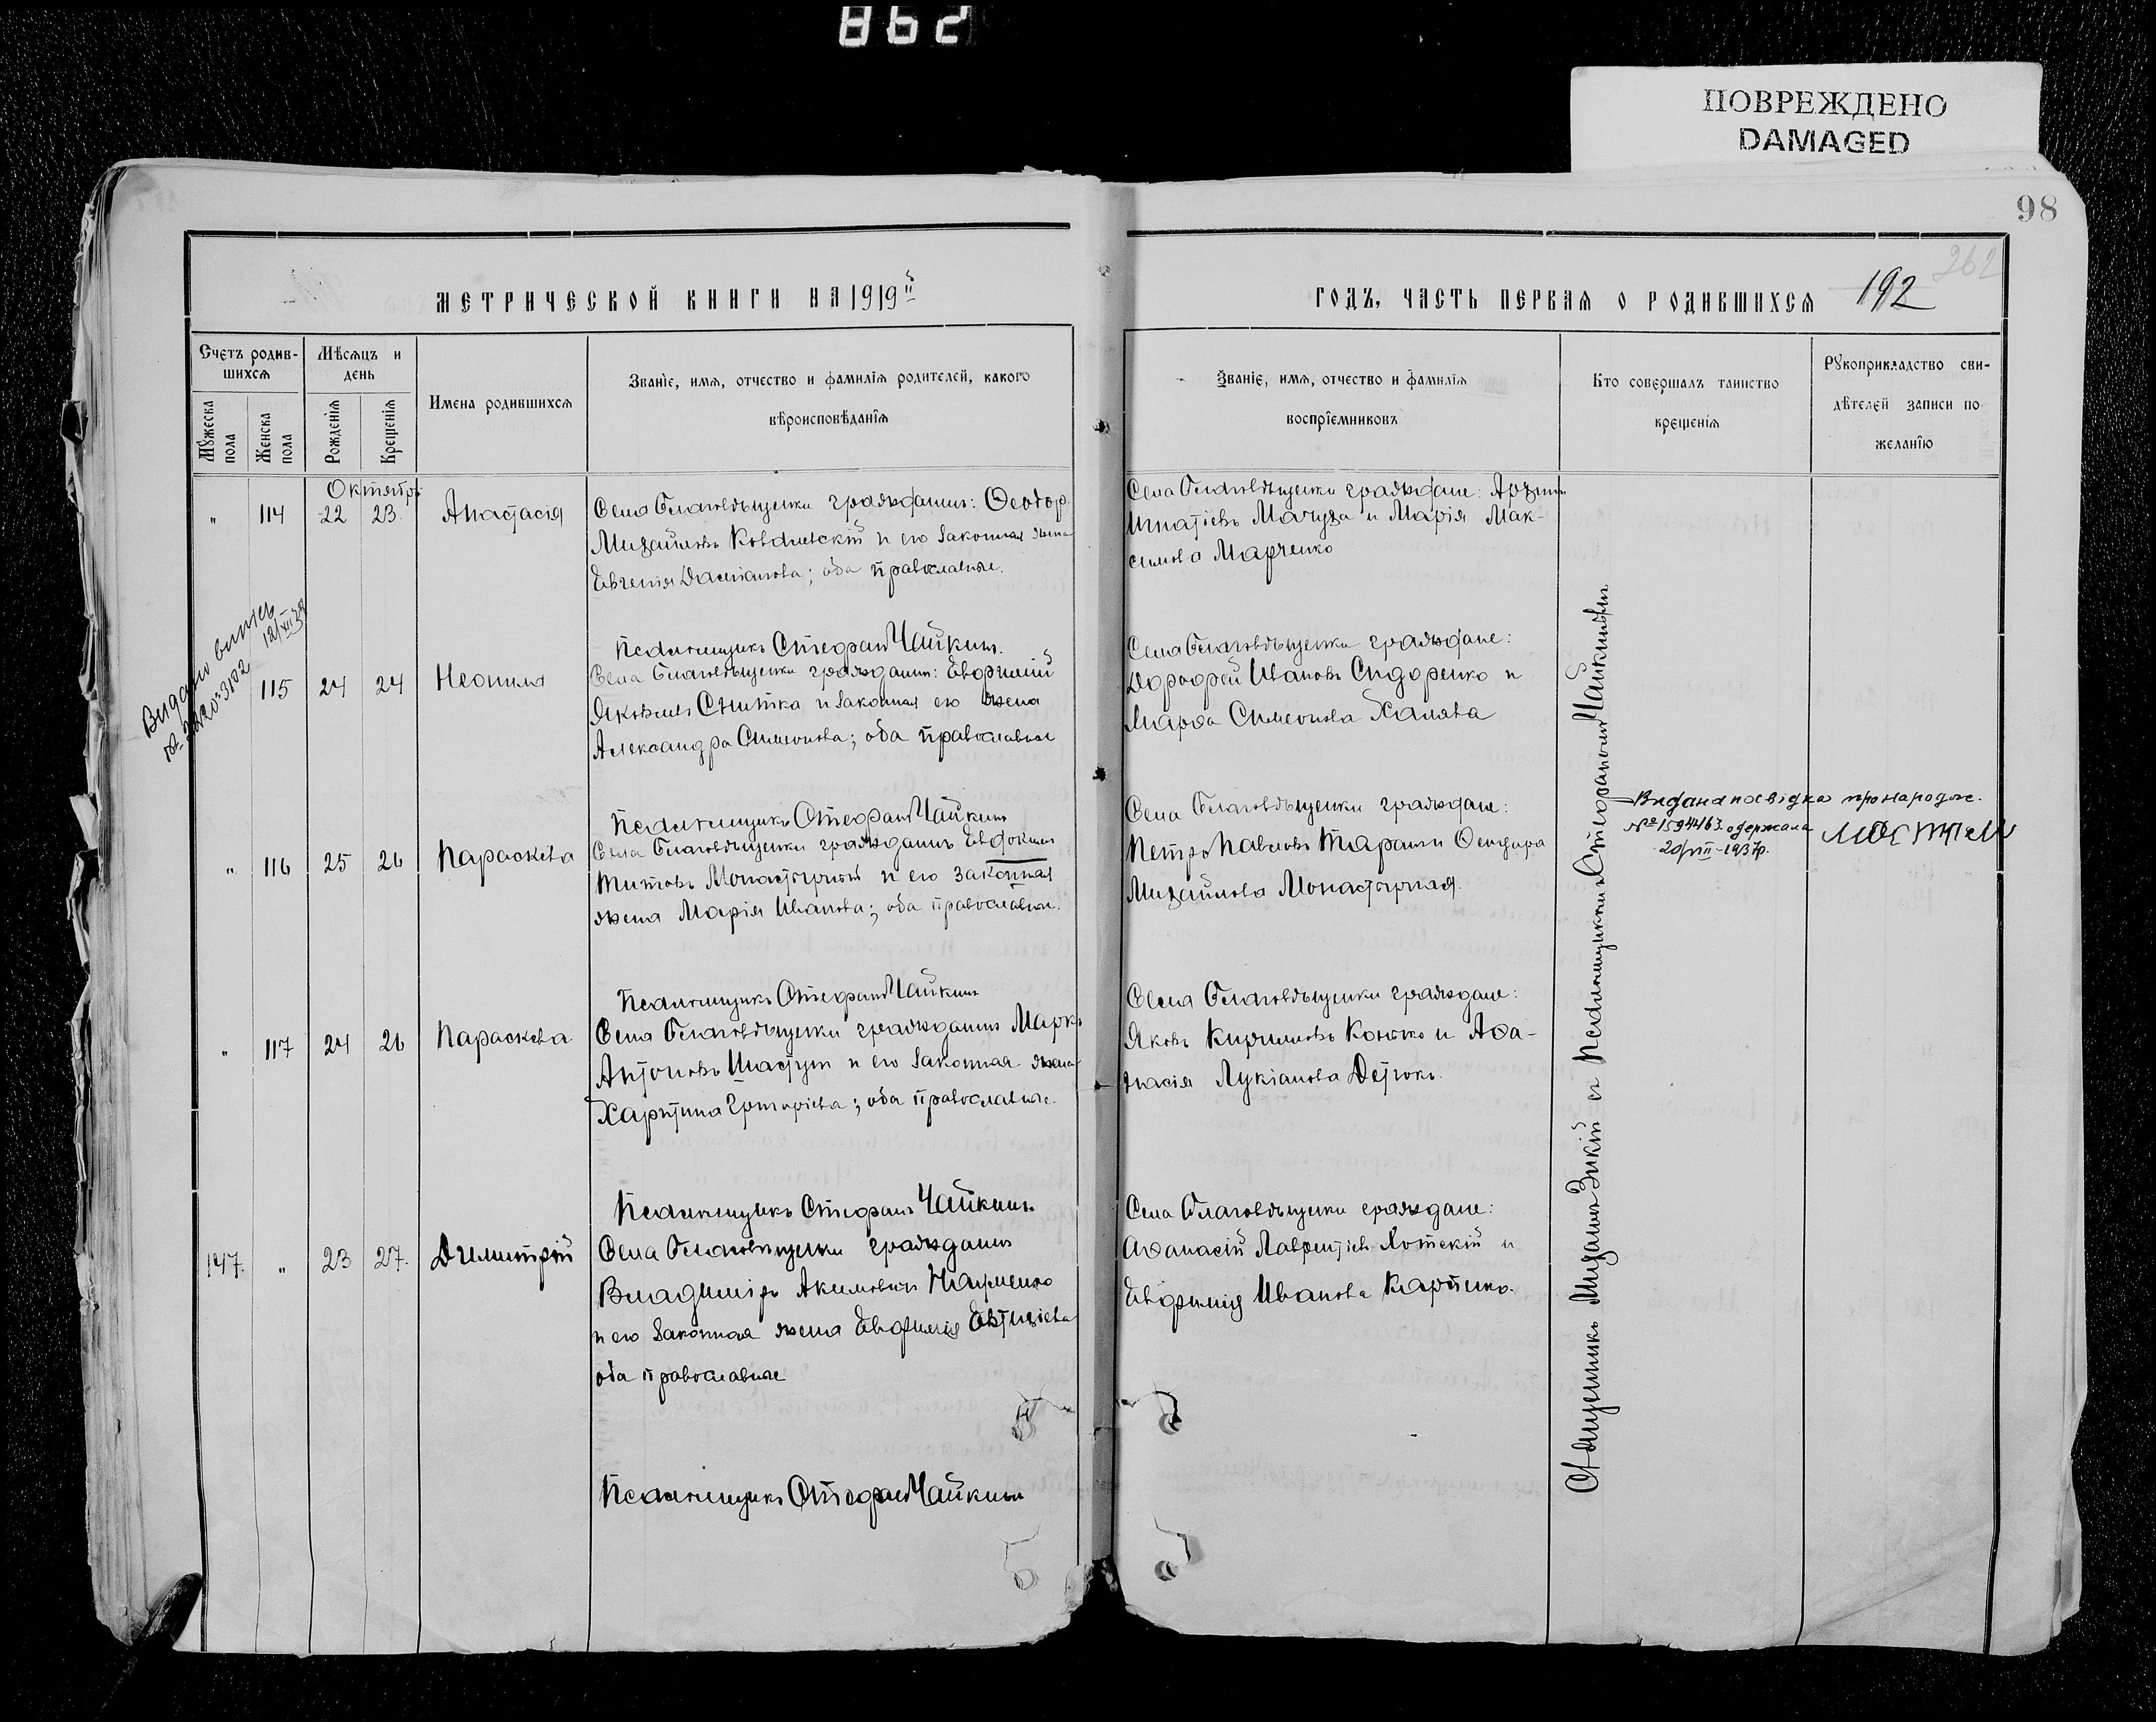 862
ПОВРЕЖДЕНО
DAMAGED
98
262
МЕТРИЧЕСКОЙ КНИГИ НА 1919й
ГОДЪ, ЧАСТЬ ПЕРВАЯ О РОДИВШИХСЯ 192
Счетъ родив-
шихся
Мужеска пола
Женска пола
Мѣсяцъ и
день
Рожденія
Крещенія
Имена родившихся
Званіе, имя, отчество и фамилія родителей, какого
вѣроисповѣданія
Званіе, имя, отчество и фамилія
воспріемниковъ
Кто совершалъ таинство
крещенія
Рукоприкладство сви-
дѣтелей записи по
желанію
Октябрь
" 114 22 23. Анастасія
Села Благовѣщенки гражданинъ: Ѳеодоръ
Михайловъ Ковалевскій и его законная жена
Евгенія Даміанова; оба православные.
Села Благовѣщенки граждане:
Игнатіевъ Мачуза и Марія Мак-
симова Марченко
Псаломщикъ Стефанъ Чайкинъ.
Видано випись
12/XII
115 24 24 Неонила
Села Благовѣщенки гражданинъ: Евфимій
Яковлевъ Снитка и законная его жена
Александра Симеонова; оба православные
Села Благовѣщенки граждане:
Дорофей Ивановъ Сидоренко и
Марфа Симеонова Халява
Псаломщикъ Стефанъ Чайкинъ
" 116 25 26 Параскева
Села Благовѣщенки гражданинъ Евфокимъ
Титовъ Монастырный и его законная
жена Марія Иванова; оба православные.
Села Благовѣщенки граждане:
Петръ Павловъ Таран и
Михайлова Монастырная.
Видана посвідка про народж.
№ 1594463. одержала
20/VIII-1937р.
Псаломщикъ Стефанъ Чайкинъ
" 117 24 26 Параскева
Села Благовѣщенки гражданинъ Маркъ
Антоновъ Шастун и его законная жена
Харитина Григоріева; оба православные.
Села Благовѣщенки граждане:
Яковъ Кирилловъ Конько и Аѳа-
насія Лукіанова Детюкъ.
Псаломщикъ Стефанъ Чайкинъ.
147. " 23 27. Димитрій
Села Благовѣщенки гражданинъ
Владиміръ Акимовичъ Науменко
и его законная жена Евфимія Евтихіева
оба православные
Села Благовѣщенки граждане:
Аѳанасій Лаврентіевъ и
Евфимія Иванова Карпенко.
Псаломщикъ Стефанъ Чайкинъ
Священникъ Михаилъ Зикій съ Псаломщикомъ Стефаномъ Чайкинымъ